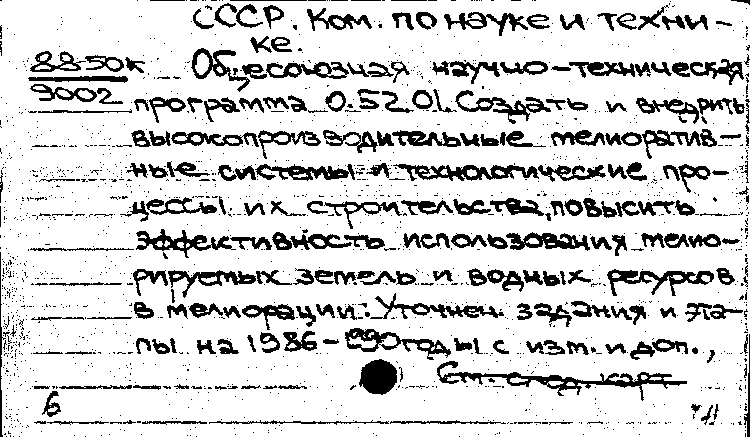 СССР. Ком. по науке и техни-
ке.
88-50к
9002
Общесоюзная научно-техническая
программа 0.52.01. Создать и внедрить
высокопроизводительные мелиоратив-
ные системы и технологические про-
цессы их строительства, повысить
эффективность использования мелио-
рируемых земель и водных ресурсов
в мелиорации: Уточнен. задания и эта-
пы на 1986-1990 годы с изм. и доп.,
См. след. карт
б